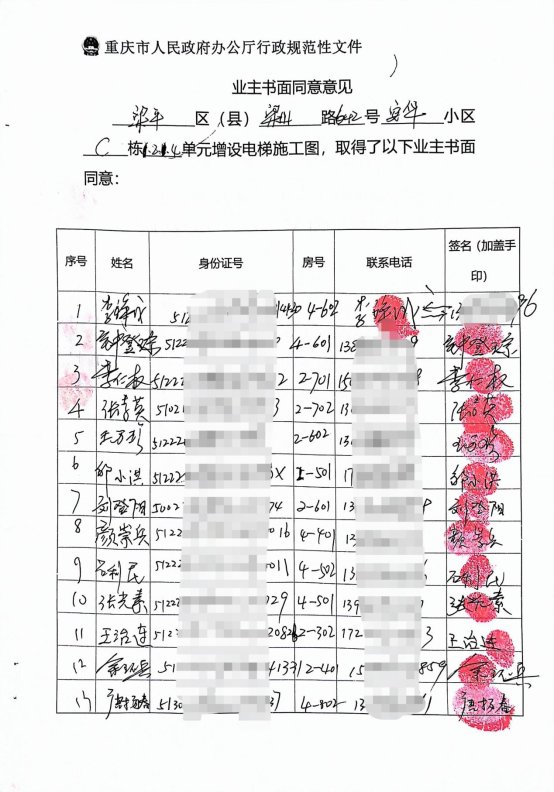 重庆市人民政府办公厅行政规范性文件
业主书面同意意见
梁平 区(县) 梁州 路642号 安华 小区
C 栋1.2.1.4单元增设电梯施工图,取得了以下业主书面
同意:
序号 姓名 身份证号 房号 联系电话 签名(加盖手印)
1 512 1430 4-602 96
2 5122 4-601 138
3 李仁权 51222 2 2-701 150 李仁权
4 张吉英 5102 3 2-702 13 张吉英
5 王万珍 51222 2-602 13
6 邹小洪 51222 X 2-501 17 邹小洪
7 刘登阳 5002 74 2-601 13 刘登阳
8 颜崇兵 5122 016 4-401 13 颜崇兵
9 石利民 5122 011 4-502 13 石利民
10 张光素 5122 029 4-501 139 张光素
11 王治连 512 2082 2-302 172 3 王治连
12 51 4133 2-401 15 859
13 5130 37 4-802 13